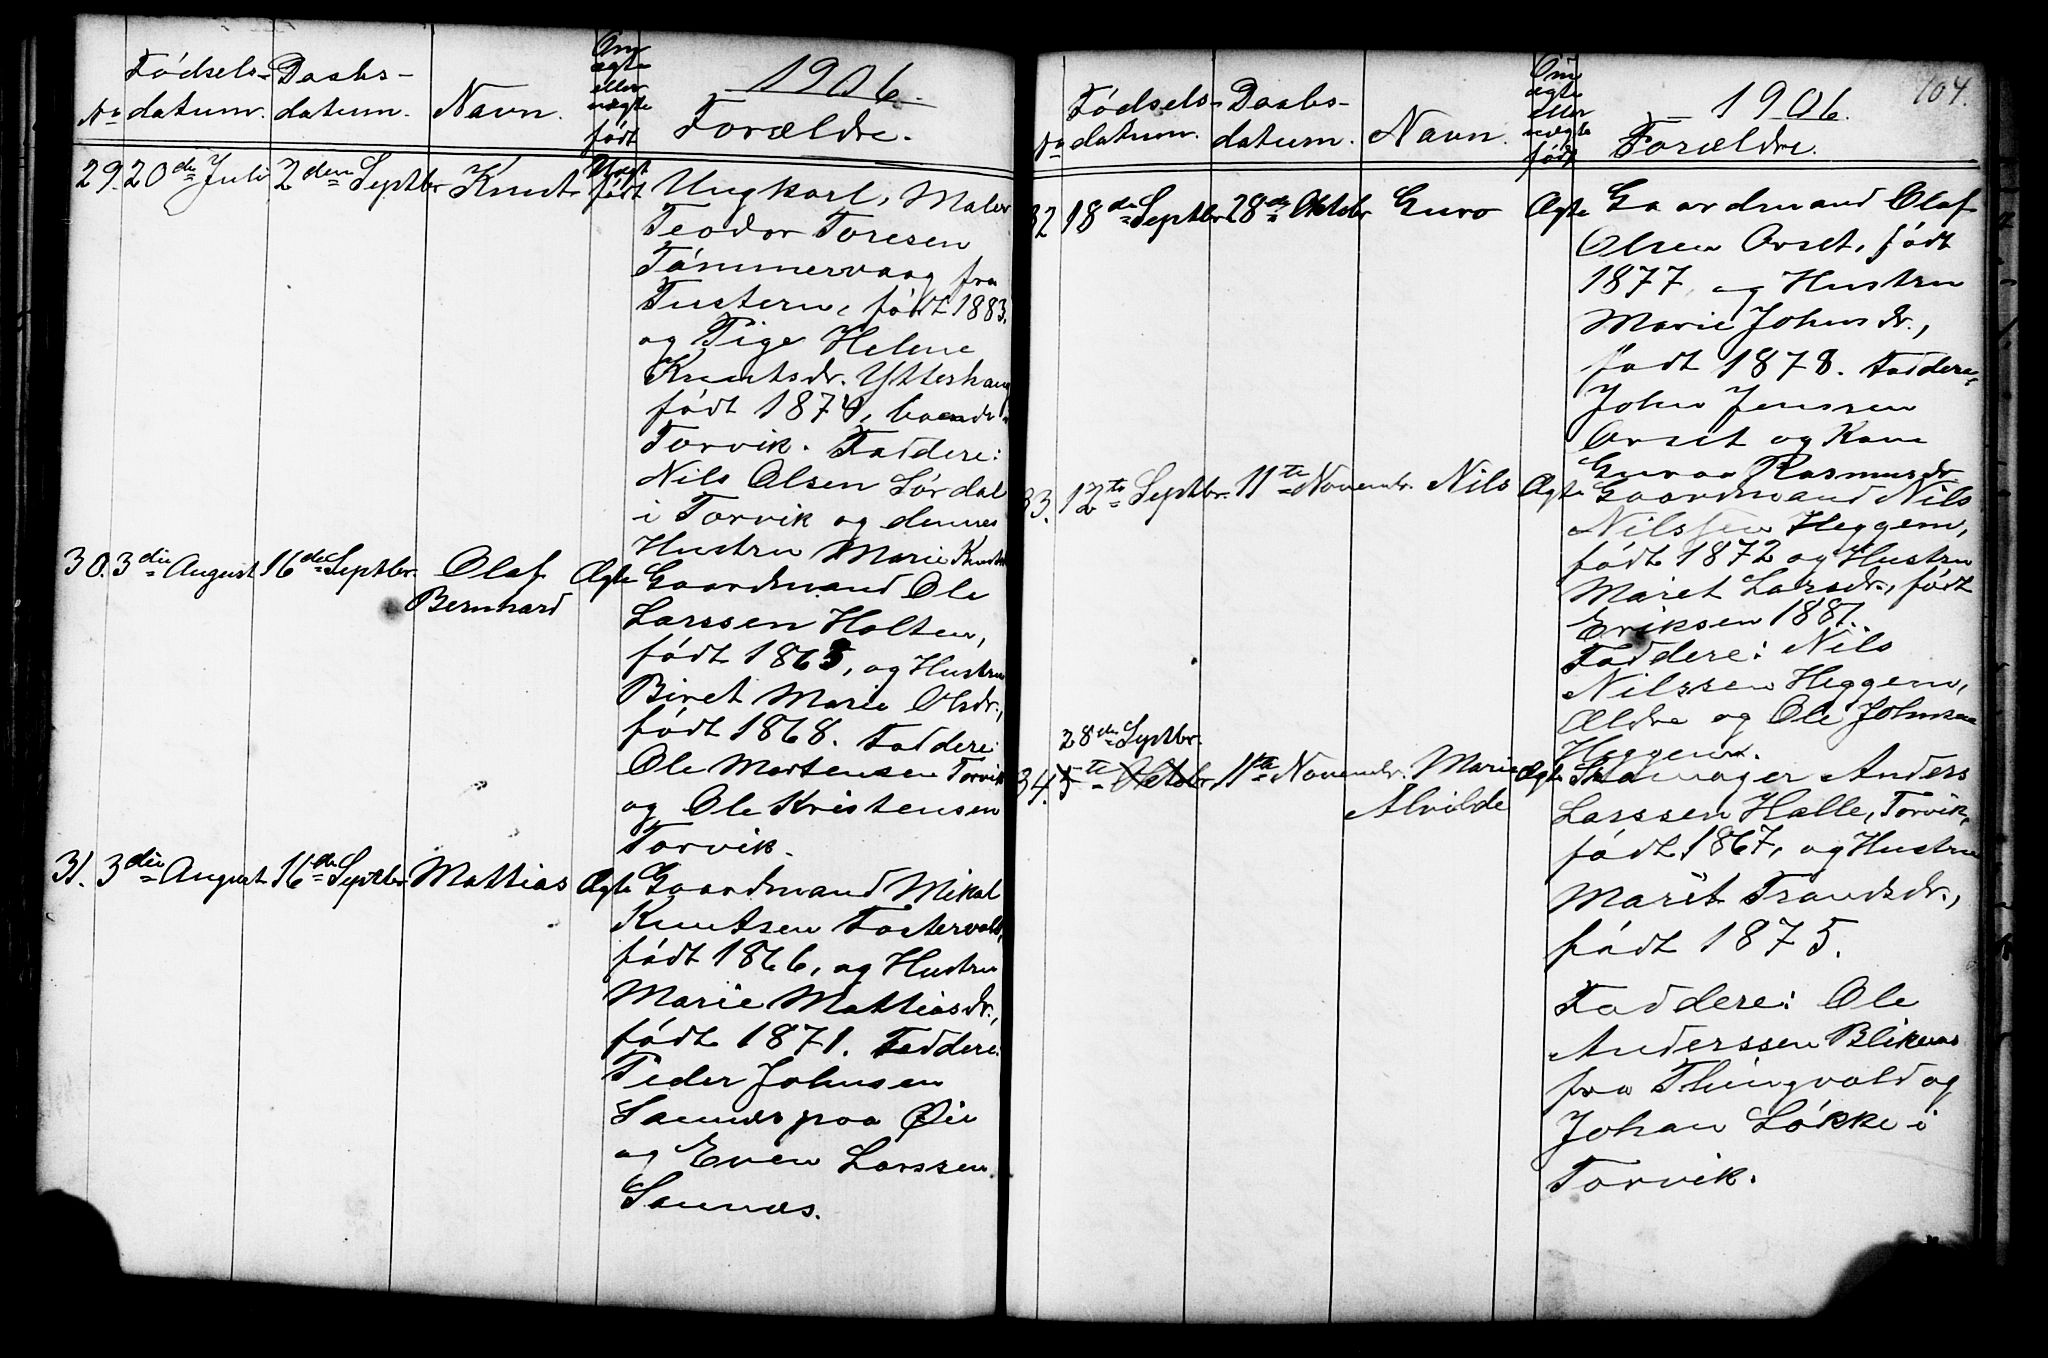 1906.
No
Fødsels-
datum.
Daabs-
datum.
Navn.
Om
ægte
eller
uægte
født
Forældre.
29. 20de Juli 2den Septbr Knut Uægt
født
Ungkarl, Maler
Teodor Toresen
Tømmervaag fra
Tustern, født 1883.
og Pige Helene
Knutsdr. Ytterhaug
født 1874, boende
Torvik. Faddere:
Nils Olsen Sørdal
i Torvik og dennes
Hustru Marie Knutsdr
30. 3die August 16de Septbr. Olaf
Bernhard
Ægte Gaardmand Ole
Larssen Holten,
født 1865, og Hustru
Biret Marie Olsdr.,
født 1868. Faddere:
Ole Mortensen Torvik
og Ole Kristensen
Torvik.
31. 3die August 16de Septbr Mattias Ægte Gaardmand Mikal
Knutsen Fostervold,
født 1866, og Hustru
Marie Mattiasdr.,
født 1871. Faddere:
Peder Johnsen
Sannes paa Øie
og Even Larssen
Sannes.
104.
1906.
No
Fødsels-
datum.
Daabs-
datum.
Navn.
Om
ægte
eller
uægte
født
Forældre.
32 18de Septbr 28de Oktobr Guro Ægte Gaardmand Olaf
Olsen Orset, født
1877 og Hustru
Marie Johnsdr.,
født 1878. Faddere,
John Jenssen
Orset og Kone
Guroo Rasmusdr
33. 12te Septbr. 11te Novembr. Nils Ægte Gaardmand Nils
Nilssen Heggem,
født 1872 og Hustru
Maret Larsdr., født
Eriksen 1881.
Faddere: Nils
Nilssen Heggem,
Ældre og Ole Johnsen
Heggem.
28de Septbr.
34. 5te Oktobr 11te Novembr. Marie
Alvilde
Ægte Skomager Anders
Larssen Halle, Torvik,
født 1867, og Hustru
Marit Trondsdr.,
født 1875.
Faddere: Ole
Anderssen Blikenas
fra Thingvold og
Johan Løkke i
Torvik.